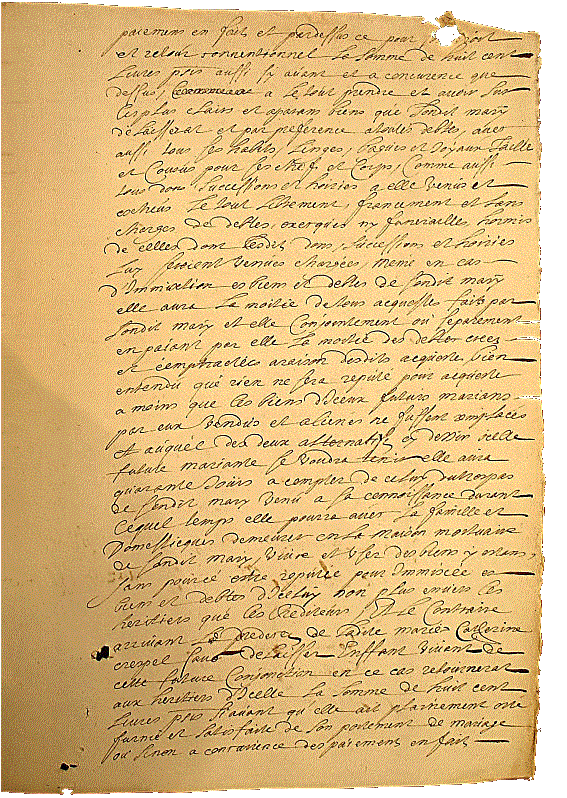 paiemens en faits et pardessus ce pour
et retour conventionnel la somme de huit cent
Livres pris aussi sy avant et a concurence que
dessus, a le tout prendre et avoir sur
les plus clairs et aparans biens que sondit mary
delaissera et par preference a toutes debtes, avec
aussi tous ses habits, Linges, bagues et Joyaux Taillé
et Cousus pour ses chef et Corps, Comme aussi
tous dons, Successions et hoiries a elle venus et
escheus Le tout Librement, franchement et sans
charges de debtes, exeques ny funerailles, hormis
de celles dont lesdits dons, Successions et hoiries
Luy seroient venues chargées, meme en cas
d'Immixtion es biens et debtes de sondit mary
elle aura La moitié de tous acquestes faits par
sondit mary et elle Conjointement ou separement
en paiant par elle La moitié des debtes crées
et contractées a raison desdits acqueste bien
entendu que rien ne sera reputé pour acqueste
a moins que Les biens d'Iceux futurs marians
par eux vendus et alienés ne fussent remplacés
Et auquel des deux alternatifs cy dessus icelle
future mariante se voudra tenir elle aura
quarante Jours a compter de celuy du trespas
de sondit mary venu a sa connoissance durant
Lequel temps elle pourra avec sa famille et
Domesticques demeurer en La maison mortuaire
de sondit mary, vivre et User des biens y estans,
sans pource estre reputée pour Immiscée es
biens et debtes d'Iceluy non plus envers Les
heritiers que Les Crediteurs Et Le Contraire
arrivant Le predeces de Ladite mariée Catherine
crespel sans delaisser Enffant vivant de
cette future Conjonction en ce cas retournera
aux heritiers d'Icelle La somme de huit cent
Livres pris si avant qu'elle ait plainement este
furnie et satisfaite de son portement de mariage
ou sinon a concurence des paiemens en faits